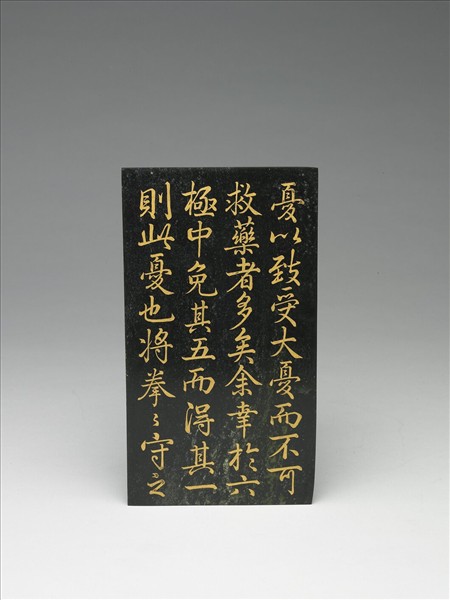 憂以致受大憂而不可
救藥者多矣余幸於六
極中免其五而得其一
則此憂也將拳〻守之